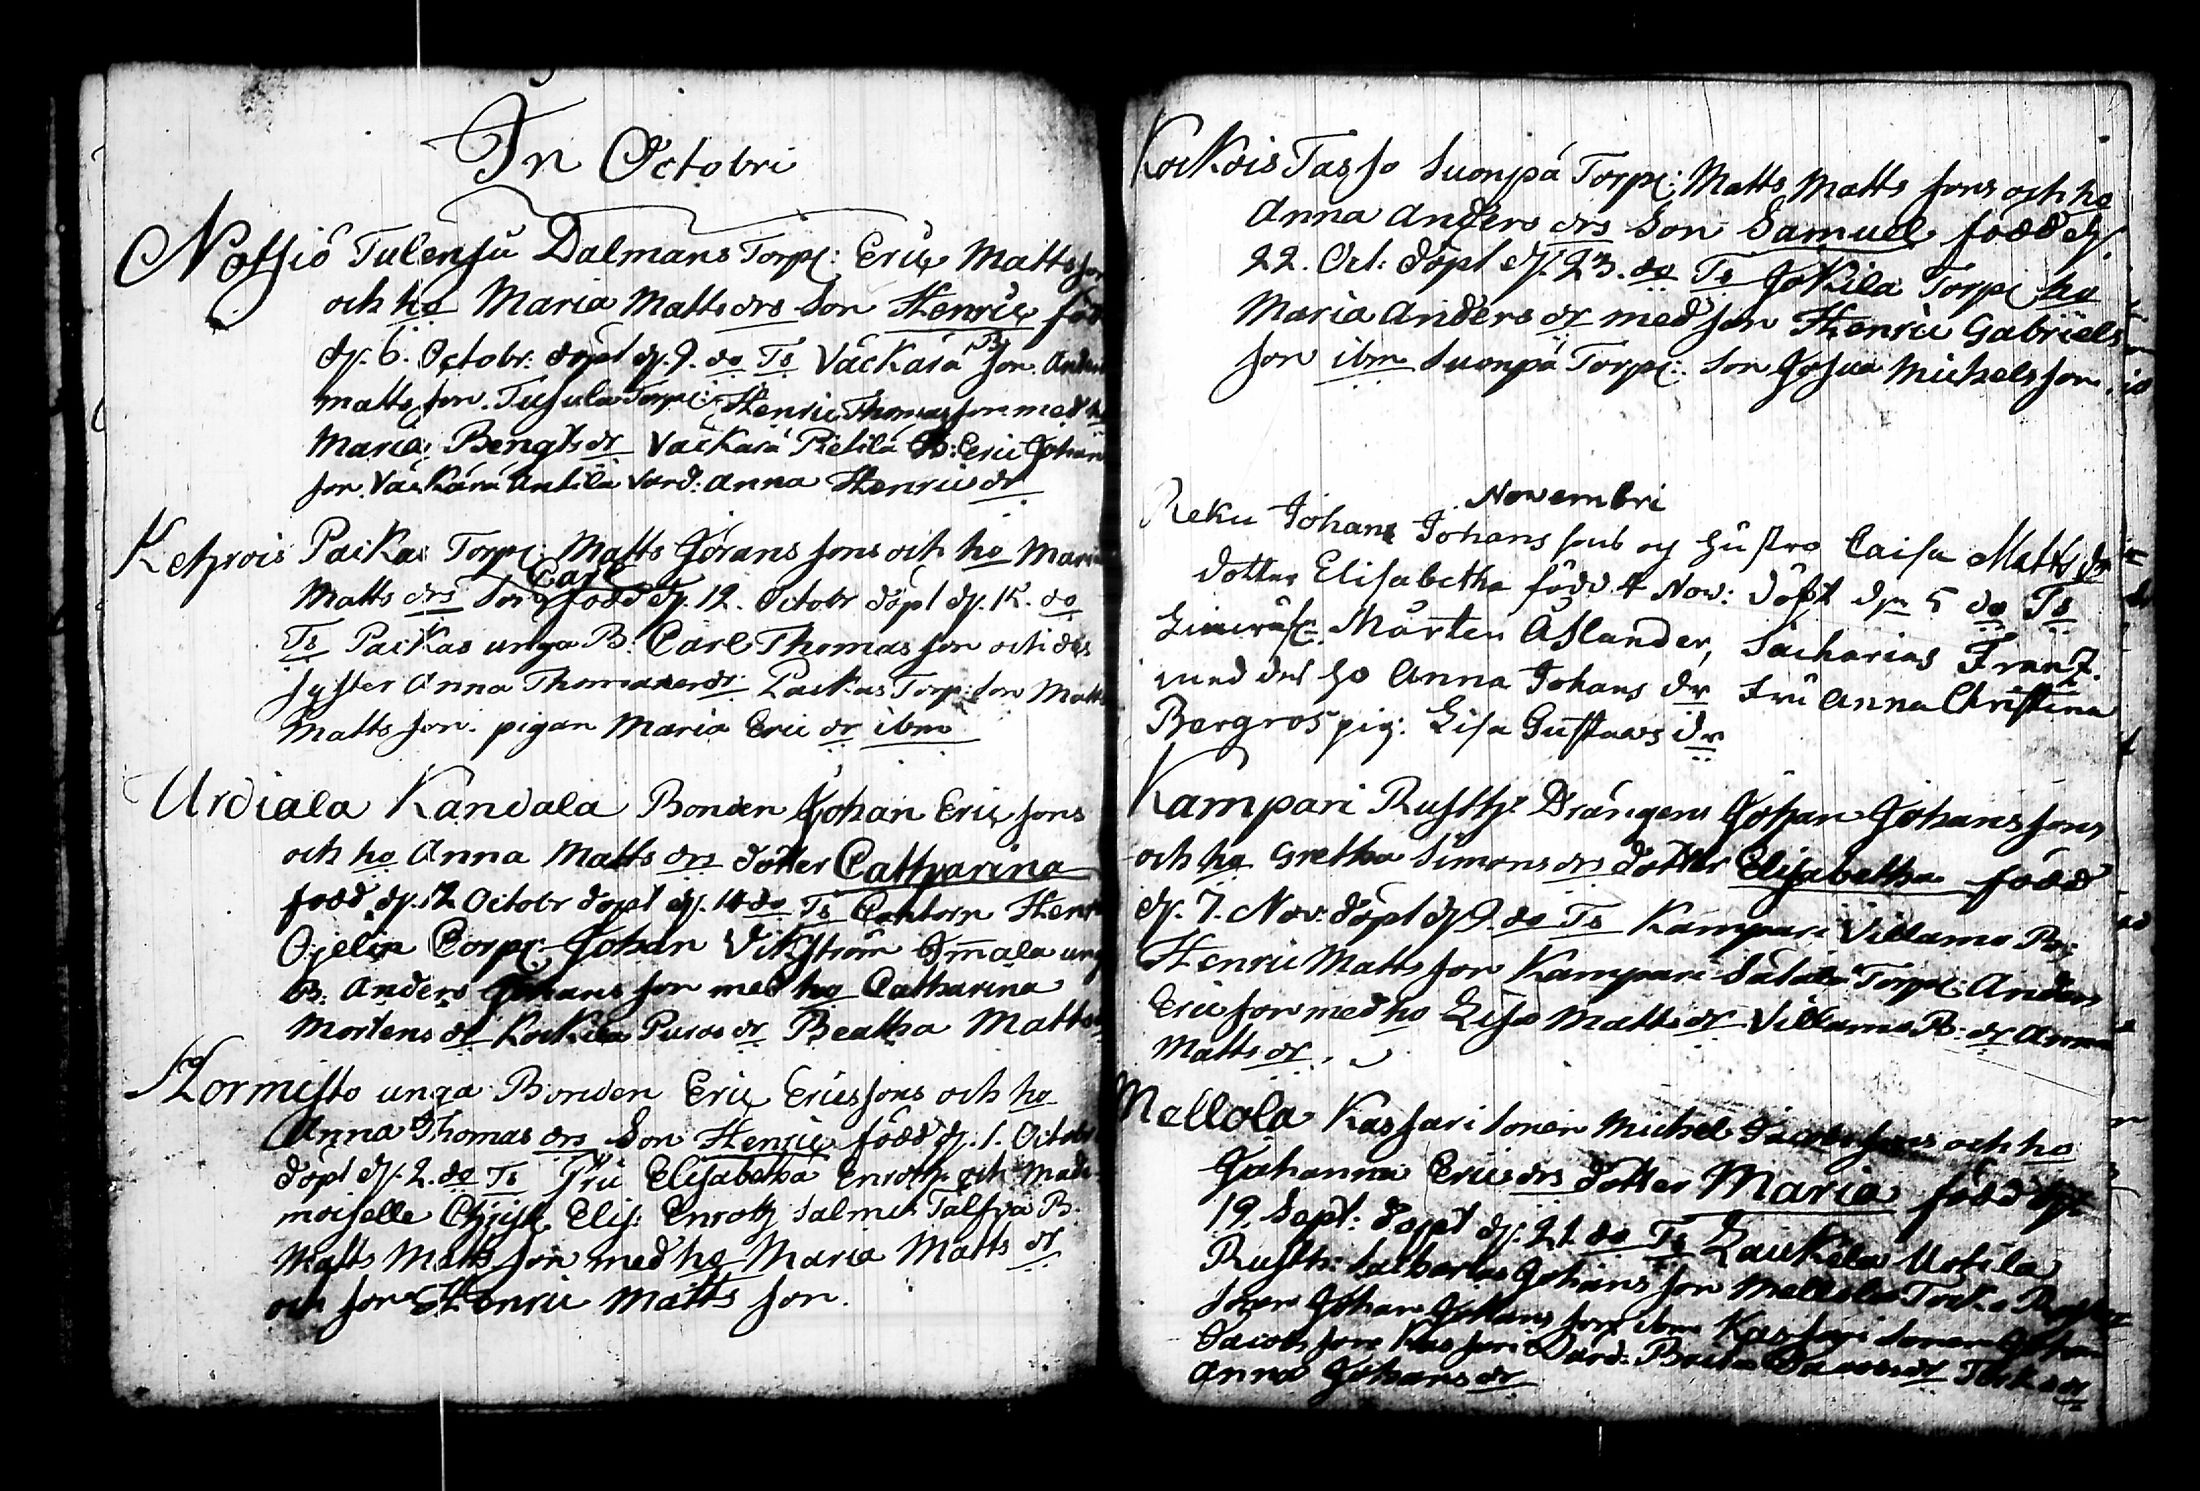 In Octobri
Notsiö Tulensü Dalmans Torp: Eric Mattsson
och ho Maria Matts drs Son Henric föd
d. 6. Octobr. döpt d. 9. do Ts Väckarä B son. Anders
Matts son. Tusula Torp: Henric Thomas son med ho
Maria Bengts dr Väckarä Pietilä B: Eric Johan
son. Väckärä Antila Värd: Anna Henrics dr
Kehrois Packas Torp: Matts Görans sons och ho Maria
Matts drs Son Carl född d. 12. Octobr döpt d. 15. do
Ts Packas unga B. Carl Thomas son och des
syster Anna Thomas dr. Packas Torp: Son Matts
Matts son. pigan Maria Eric dr ibm
Urdiala Kandala Bonden Johan Eric sons
och ho Anna Matts drs dotter Catharina
född d. 12 Octobr döpt d. 14 do Ts Cantorn Henr
Ojelin Corp: Johan Vikström unga
B. Anders Johans son med ho Catharina
Mortens dr Kockila Puros dr Beatha Matts
Hormisto unga Bonden Eric Erics sons och ho
Anna Thomas drs Son Henric född d. 1. Octobr
döpt d. 2. do Ts Fru Elisabetha Enroth och Made-
moiselle Christ: Elis: Enroth Salmis B.
Matts Matts son med ho Maria Matts dr
och son Henric Matts son.
Kockois Tasso Suonpä Torp: Matts Matts sons och ho
Anna Anders drs Son Samuel född d.
22. Oct: döpt d. 23. do Ts Jokila Torp ho
Maria Anders dr med son Henric Gabriels
son ibm Suonpä Torp: Son Josua Michels son.
Novembri
Reku Johan Johans sons og hustro Caisa Matts dr
dotter Elisabetha född 4 Nov: döpt den 5 do Ts
Mårten Aslander, Sacharias Frantz
med des ho Anna Johans dr Fru Anna Christina
Bergros pig: Lisa Gustavs dr
Kampari Rusth: Drängens Johan Johans sons
och ho Gretha Simons drs dotter Elisabetha född
d. 7. Nov: döpt d. 9. do Ts Kampari Villamo B:
Henric Matts son Kampari Torp: Anders
Erics son med ho Lisa Matts dr Villamo B: dr Anna
Matts dr.
Mellola Kassari Sonen Michel Jacobs sons och ho
Johanna Erics drs dotter Maria född d.
19. Sept: döpt d. 21. do Ts Laukela Uotila
Rusth: Sacharias Johans son Mellola
Sonen Johan Johans son ibm Kassari Sonen Johan
Jacobs son Kassari Värd: Brita Jacobs dr dr
Anna Johans dr